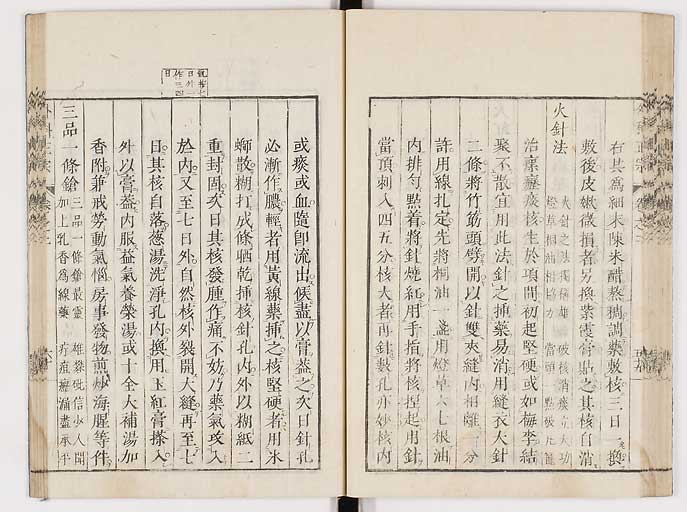 右共爲細末陳米醋熬稠調藥敷核三日一換
敷後皮嫩微損者另換紫霞膏貼之其核自消
火針法
火針之法獨稱雄 破核消痰立大功
燈草桐油相恊力 當頭一點破凡籠
治瘰癧痰核生於項間初起堅硬或如梅李結
聚不散宜用此法針之揷藥易消用縫衣大針
二條將竹筯頭劈開以針雙夾縫内相離一分
許用線扎定先將桐油一盞用燈草六七根油
内排勻點着將針燒紅用手指將核捏起用針
當頂刺入四五分核大者再針數孔亦妙核内
或痰或血隨即流出候盡以膏葢之次日針孔
必漸作膿輕者用黃線藥揷之核堅硬者用氷
螄散糊打成條晒乾揷核針孔内外以糊紙二
重封固次日其核發腫作痛不妨乃藥氣攻入
於内又至七日外自然核外裂開大縫再至七
日其核自落葱湯洗淨孔内換用玉紅膏搽入
外以膏葢内服益氣養榮湯或十全大補湯加
香附兼戒勞動氣惱房事發物煎炒海腥等件
三品一條鎗
三品一條鎗最靈 雄礬砒信少人聞
加上乳香爲線藥 疔疽癧漏盡承平